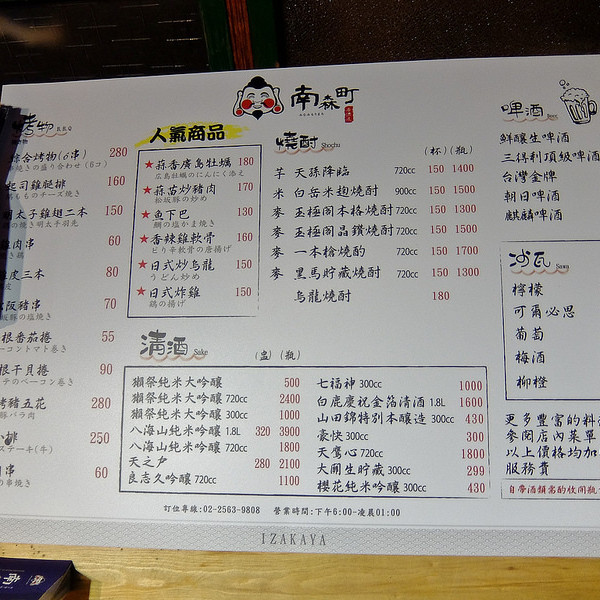 南森町
烤物
綜合烤物(6串) 280
160
明太子雞翅二本 150
60
80
70
番茄捲 55
ベーコントマト巻き
干貝捲 90
五花 280
250
ステーキ(牛)
60
人氣商品
★蒜香廣島牡蠣 180
広島牡蠣のにんにく添え
★蒜苗炒豬肉 170
松坂豚の炒め
★魚下巴 130
鯛の塩かま焼き
★香辣雞軟骨 160
ピリ辛軟骨の唐揚げ
★日式炒烏龍 150
うどん炒め
★日式炸雞 150
鶏の揚げ
燒酎 Shochu (杯)(瓶)
芋 天孫降臨 720cc 150 1400
米 白岳米麹燒酎 900cc 150 1500
麥 玉極閣本格燒酎 720cc 150 1300
麥 玉極閣晶鑽燒酎 720cc 150 1500
麥 一本槍燒酌 720cc 150 1700
麥 黑馬貯蔵燒酎 720cc 150 1300
烏龍燒酎 180
啤酒 Beer
鮮釀生啤酒
三得利頂級啤酒
台灣金牌
朝日啤酒
麒麟啤酒
沙瓦 Sawa
檸檬
可爾必思
葡萄
梅酒
柳橙
清酒 Sake (盅)(瓶)
獺祭純米大吟釀 500
獺祭純米大吟釀 720cc 2400
獺祭純米大吟釀 300cc 1000
八海山純米吟釀 1.8L 320 3900
八海山純米吟釀 720cc 1800
天之戶 280 2100
良志久吟釀 720cc 1100
七福神 300cc 1000
白鹿慶祝金箔清酒 1.8L 1600
山田錦特別本釀造 300cc 430
豪快 300cc 300
天鷹心 720cc 1800
大關生貯藏 300cc 299
櫻花純米吟釀 300cc 430
更多豐富的料
參閱店內菜單
以上價格均加
服務費
自帶酒類需酌收開瓶
訂位專線:02-2563-9808 營業時間:下午6:00-凌晨01:00
IZAKAYA